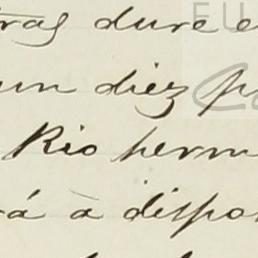 tras dure e
un diez p
Rio herm
rá à dispo